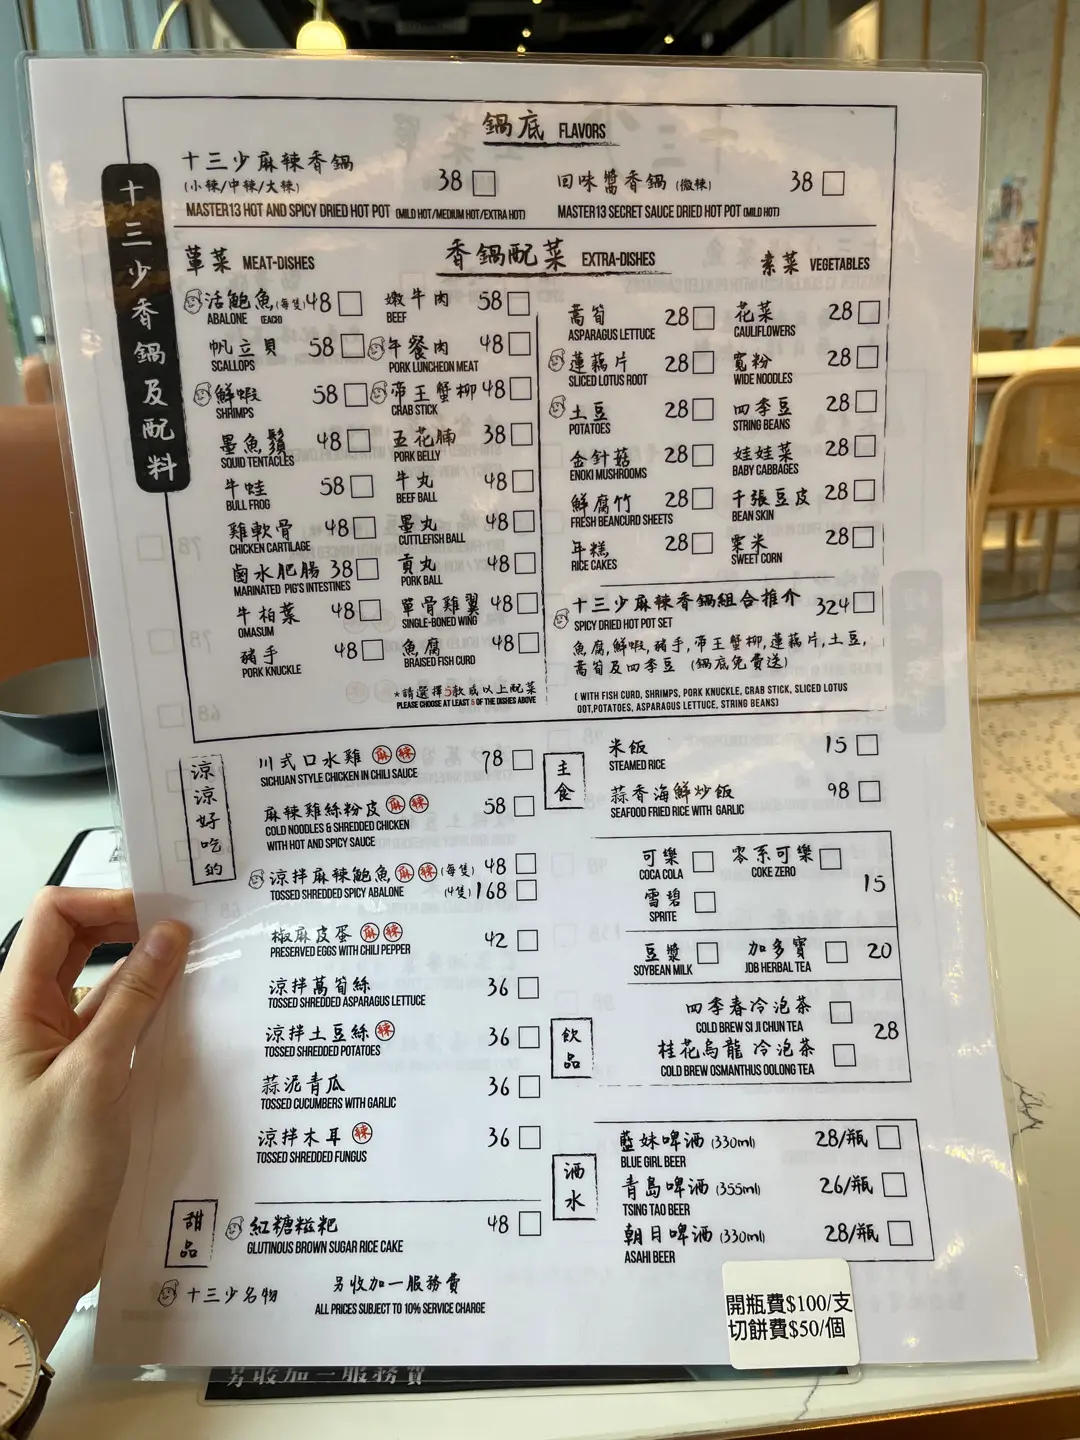 鍋底 FLAVORS
十三少麻辣香鍋 38
(小辣/中辣/大辣)
MASTER13 HOT AND SPICY DRIED HOT POT (MILD HOT/MEDIUM HOT/EXTRA HOT)
回味醬香鍋 (微辣) 38
MASTER13 SECRET SAUCE DRIED HOT POT (MILD HOT)
十三少香鍋及配料
香鍋配菜 EXTRA-DISHES
葷菜 MEAT-DISHES
活鮑魚(每隻) 48
ABALONE (EACH)
帆立貝 58
SCALLOPS
鮮蝦 58
SHRIMPS
墨魚鬚 48
SQUID TENTACLES
牛蛙 58
BULL FROG
雞軟骨 48
CHICKEN CARTILAGE
鹵水肥腸 38
MARINATED PIG'S INTESTINES
牛柏葉 48
OMASUM
豬手 48
PORK KNUCKLE
嫩牛肉 58
BEEF
午餐肉 48
PORK LUNCHEON MEAT
帝王蟹柳 48
CRAB STICK
五花腩 38
PORK BELLY
牛丸 48
BEEF BALL
墨丸 48
CUTTLEFISH BALL
貢丸 48
PORK BALL
單骨雞翼 48
SINGLE-BONED WING
魚腐 48
BRAISED FISH CURD
*請選擇5款或以上配菜
PLEASE CHOOSE AT LEAST 5 OF THE DISHES ABOVE
素菜 VEGETABLES
萵筍 28
ASPARAGUS LETTUCE
蓮藕片 28
SLICED LOTUS ROOT
土豆 28
POTATOES
金針菇 28
ENOKI MUSHROOMS
鮮腐竹 28
FRESH BEANCURD SHEETS
年糕 28
RICE CAKES
花菜 28
CAULIFLOWERS
寬粉 28
WIDE NOODLES
四季豆 28
STRING BEANS
娃娃菜 28
BABY CABBAGES
千張豆皮 28
BEAN SKIN
粟米 28
SWEET CORN
十三少麻辣香鍋組合推介 324
SPICY DRIED HOT POT SET
魚腐,鮮蝦,豬手,帝王蟹柳,蓮藕片,土豆,
萵筍及四季豆 (鍋底免費送)
( WITH FISH CURD, SHRIMPS, PORK KNUCKLE, CRAB STICK, SLICED LOTUS
OOT,POTATOES, ASPARAGUS LETTUCE, STRING BEANS)
涼涼好吃的
川式口水雞 麻 辣 78
SICHUAN STYLE CHICKEN IN CHILI SAUCE
麻辣雞絲粉皮 麻 辣 58
COLD NOODLES & SHREDDED CHICKEN
WITH HOT AND SPICY SAUCE
涼拌麻辣鮑魚 麻 辣 (每隻) 48
TOSSED SHREDDED SPICY ABALONE (4隻) 168
椒麻皮蛋 麻 辣 42
PRESERVED EGGS WITH CHILI PEPPER
涼拌萵筍絲 36
TOSSED SHREDDED ASPARAGUS LETTUCE
涼拌土豆絲 辣 36
TOSSED SHREDDED POTATOES
蒜泥青瓜 36
TOSSED CUCUMBERS WITH GARLIC
涼拌木耳 辣 36
TOSSED SHREDDED FUNGUS
甜品
紅糖糍粑 48
GLUTINOUS BROWN SUGAR RICE CAKE
十三少名物
另收加一服務費
ALL PRICES SUBJECT TO 10% SERVICE CHARGE
主食
米飯 15
STEAMED RICE
蒜香海鮮炒飯 98
SEAFOOD FRIED RICE WITH GARLIC
飲品
可樂
COCA COLA
零系可樂
COKE ZERO
15
雪碧
SPRITE
豆漿
SOYBEAN MILK
加多寶
JDB HERBAL TEA
20
四季春冷泡茶
COLD BREW SI JI CHUN TEA
28
桂花烏龍 冷泡茶
COLD BREW OSMANTHUS OOLONG TEA
酒水
藍妹啤酒 (330ml) 28/瓶
BLUE GIRL BEER
青島啤酒 (355ml) 26/瓶
TSING TAO BEER
朝日啤酒 (330ml) 28/瓶
ASAHI BEER
開瓶費$100/支
切餅費$50/個
另收加一服務費